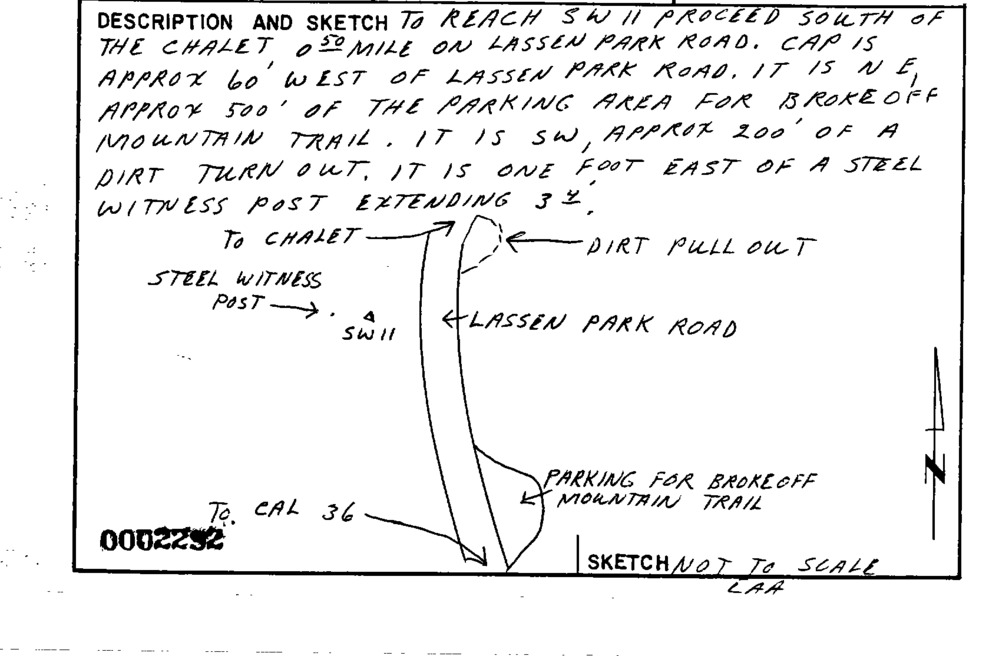 DESCRIPTION AND SKETCH TO REACH SW 11 PROCEED SOUTH OF
THE CHALET 0 50 MILE ON LASSEN PARK ROAD. CAP IS
APPROX 60' WEST OF LASSEN PARK ROAD. IT IS N E,
APPROX 500' OF THE PARKING AREA FOR BROKEOFF
MOUNTAIN TRAIL. IT IS SW, APPROX 200' OF A
DIRT TURN OUT. IT IS ONE FOOT EAST OF A STEEL
WITNESS POST EXTENDING
TO CHALET
DIRT PULL OUT
STEEL WITNESS
POST
SW11
LASSEN PARK ROAD
N
PARKING FOR BROKEOFF
MOUNTAIN TRAIL
TO. CAL 36
SKETCH NOT TO SCALE
LAA